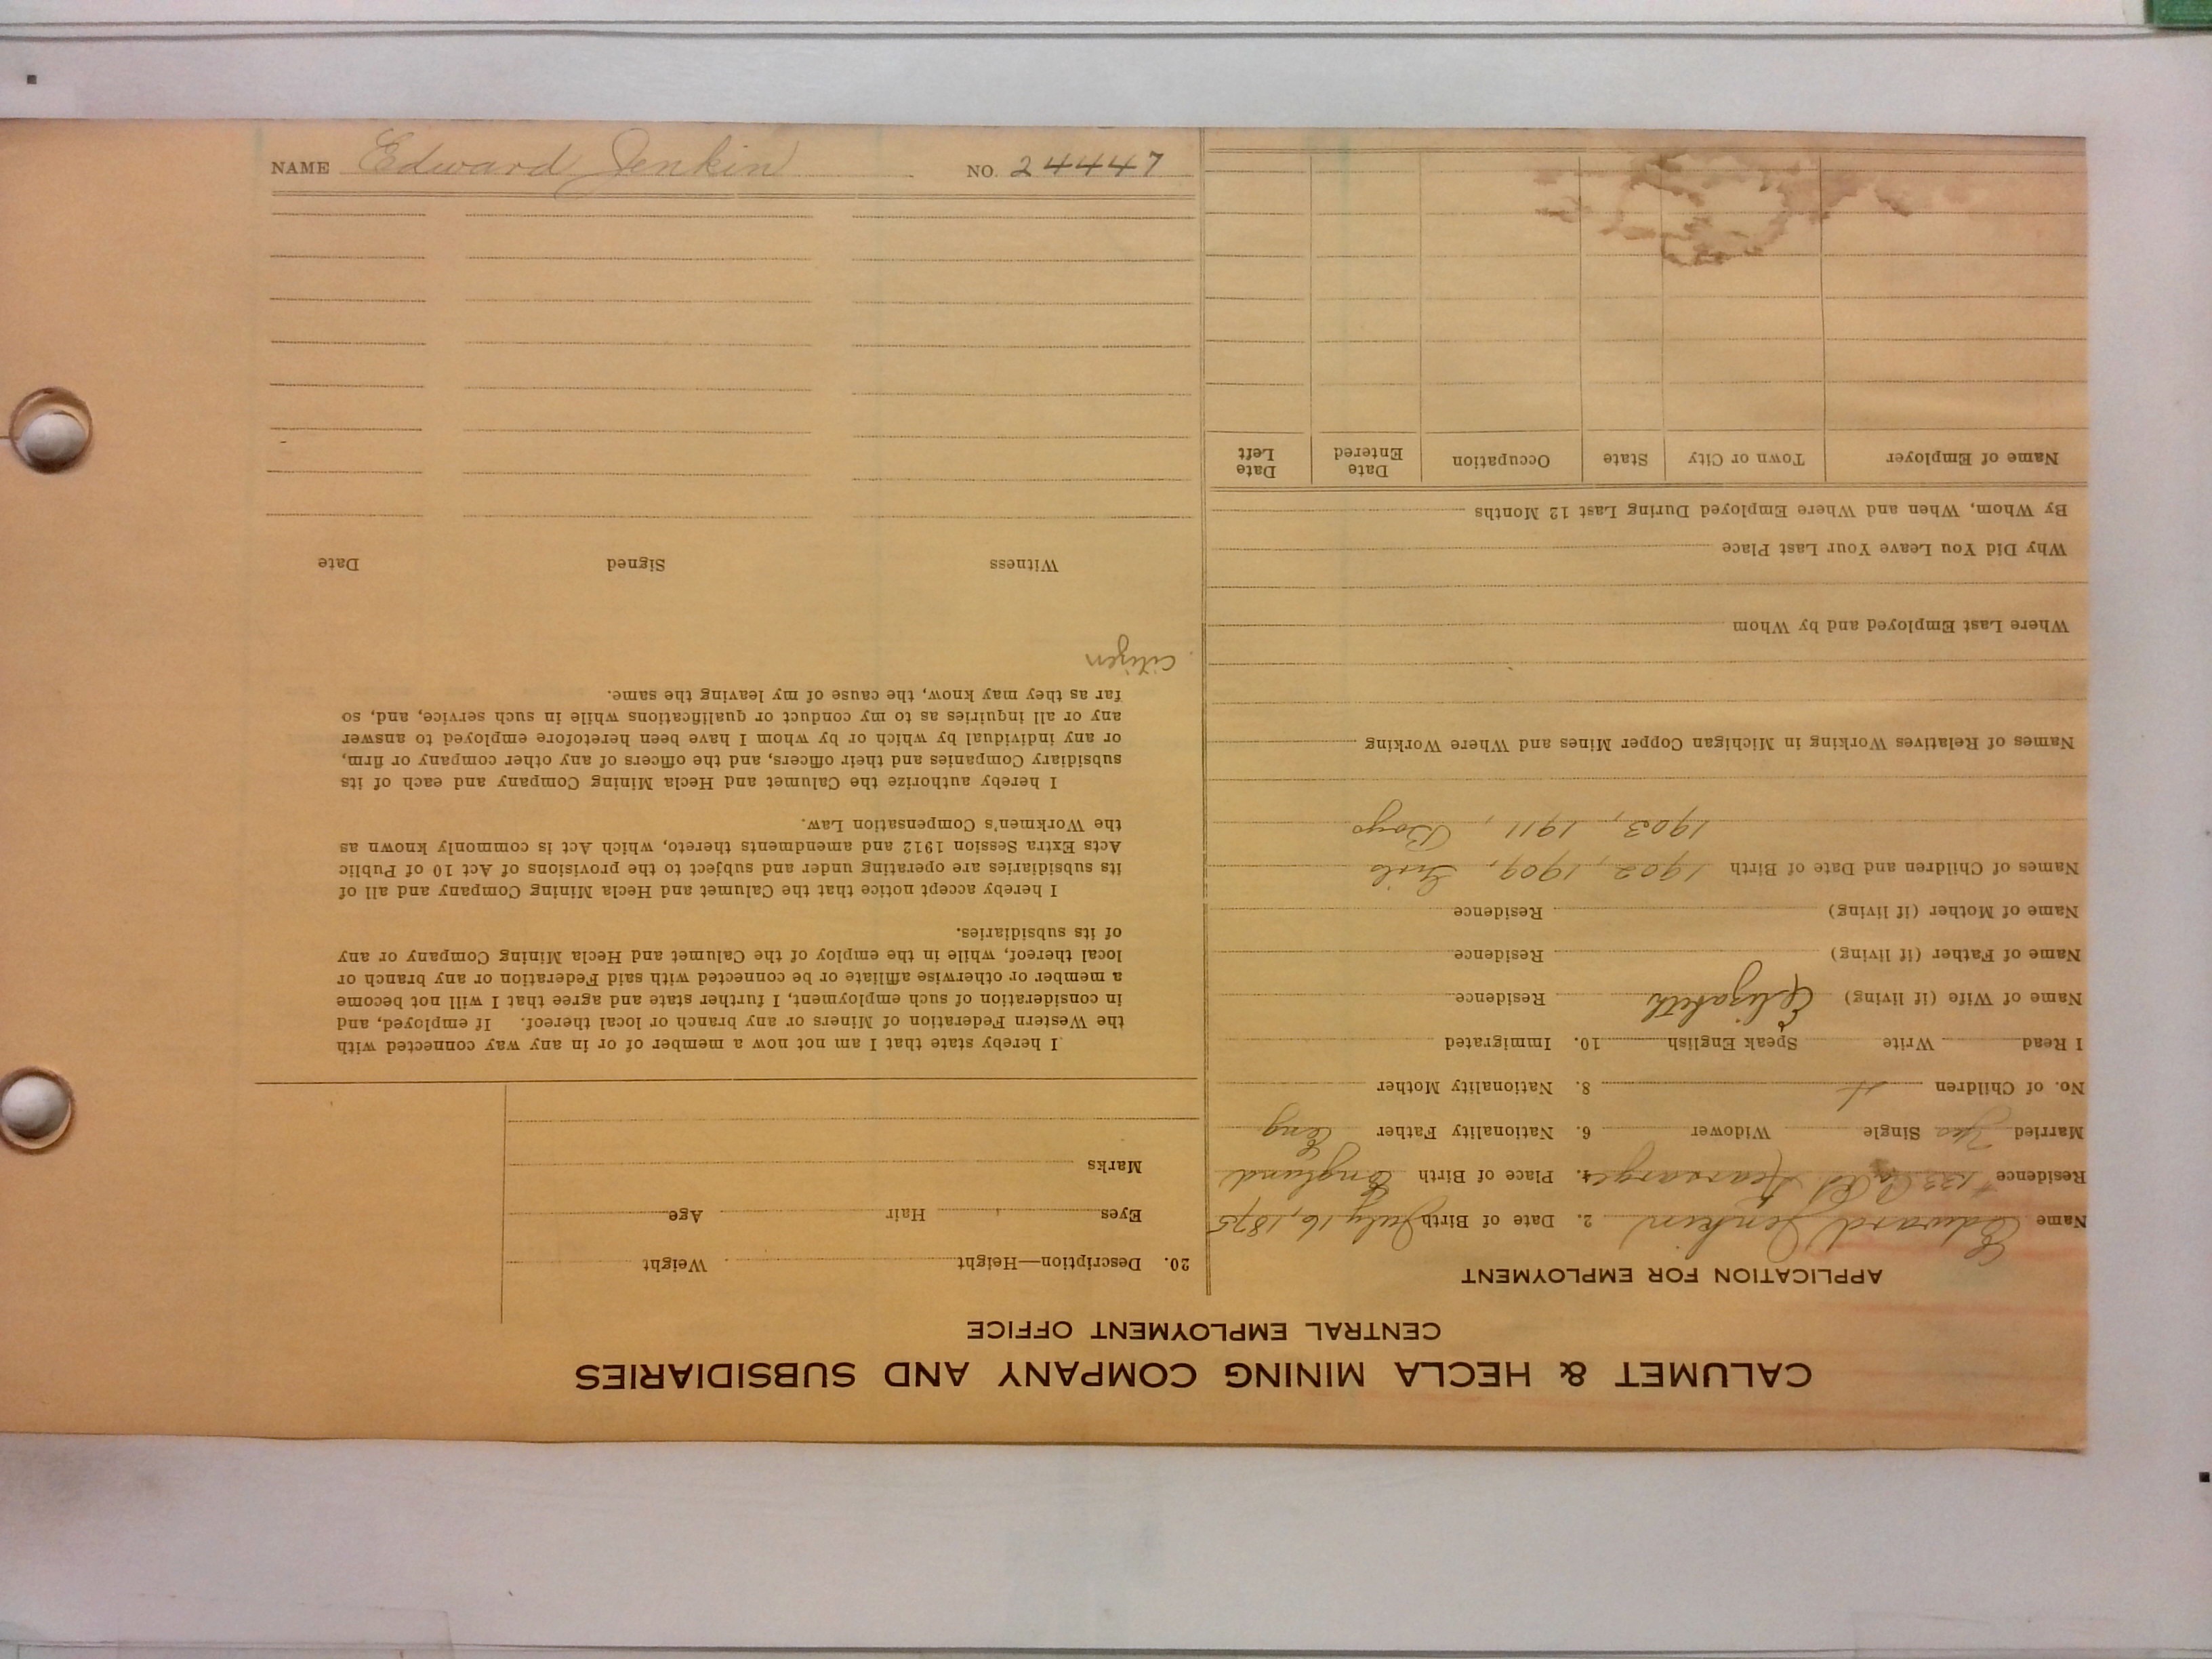 NAME Edward Jenkin NO. 24447
CALUMET & HECLA MINING COMPANY AND SUBSIDIARIES
CENTRAL EMPLOYMENT OFFICE
APPLICATION FOR EMPLOYMENT
Name Edward Jenkin 2. Date of Birth July 16, 1875
Residence Kearsarge 4. Place of Birth England
Married Yes Single Widower 6. Nationality Father Eng
No. of Children 4 8. Nationality Mother
I Read Write Speak English 10. Immigrated
Name of Wife (if living) Elizabeth Residence
Name of Father (if living) Residence
Name of Mother (if living) Residence
Names of Children and Date of Birth 1902, 1909, Girls
1903, 1911, Boys
Names of Relatives Working in Michigan Copper Mines and Where Working
Where Last Employed and by Whom
Why Did You Leave Your Last Place
By Whom, When and Where Employed During Last 12 Months
Name of Employer Town or City State Occupation Date Entered Date Left
20. Description—Height Weight
Eyes Hair Age
Marks
I hereby state that I am not now a member of or in any way connected with
the Western Federation of Miners or any branch or local thereof. If employed, and
in consideration of such employment, I further state and agree that I will not become
a member or otherwise affiliate or be connected with said Federation or any branch or
local thereof, while in the employ of the Calumet and Hecla Mining Company or any
of its subsidiaries.
I hereby accept notice that the Calumet and Hecla Mining Company and all of
its subsidiaries are operating under and subject to the provisions of Act 10 of Public
Acts Extra Session 1912 and amendments thereto, which Act is commonly known as
the Workmen's Compensation Law.
I hereby authorize the Calumet and Hecla Mining Company and each of its
subsidiary Companies and their officers, and the officers of any other company or firm,
or any individual by which or by whom I have been heretofore employed to answer
any or all inquiries as to my conduct or qualifications while in such service, and, so
far as they may know, the cause of my leaving the same.
Citizen
Witness Signed Date